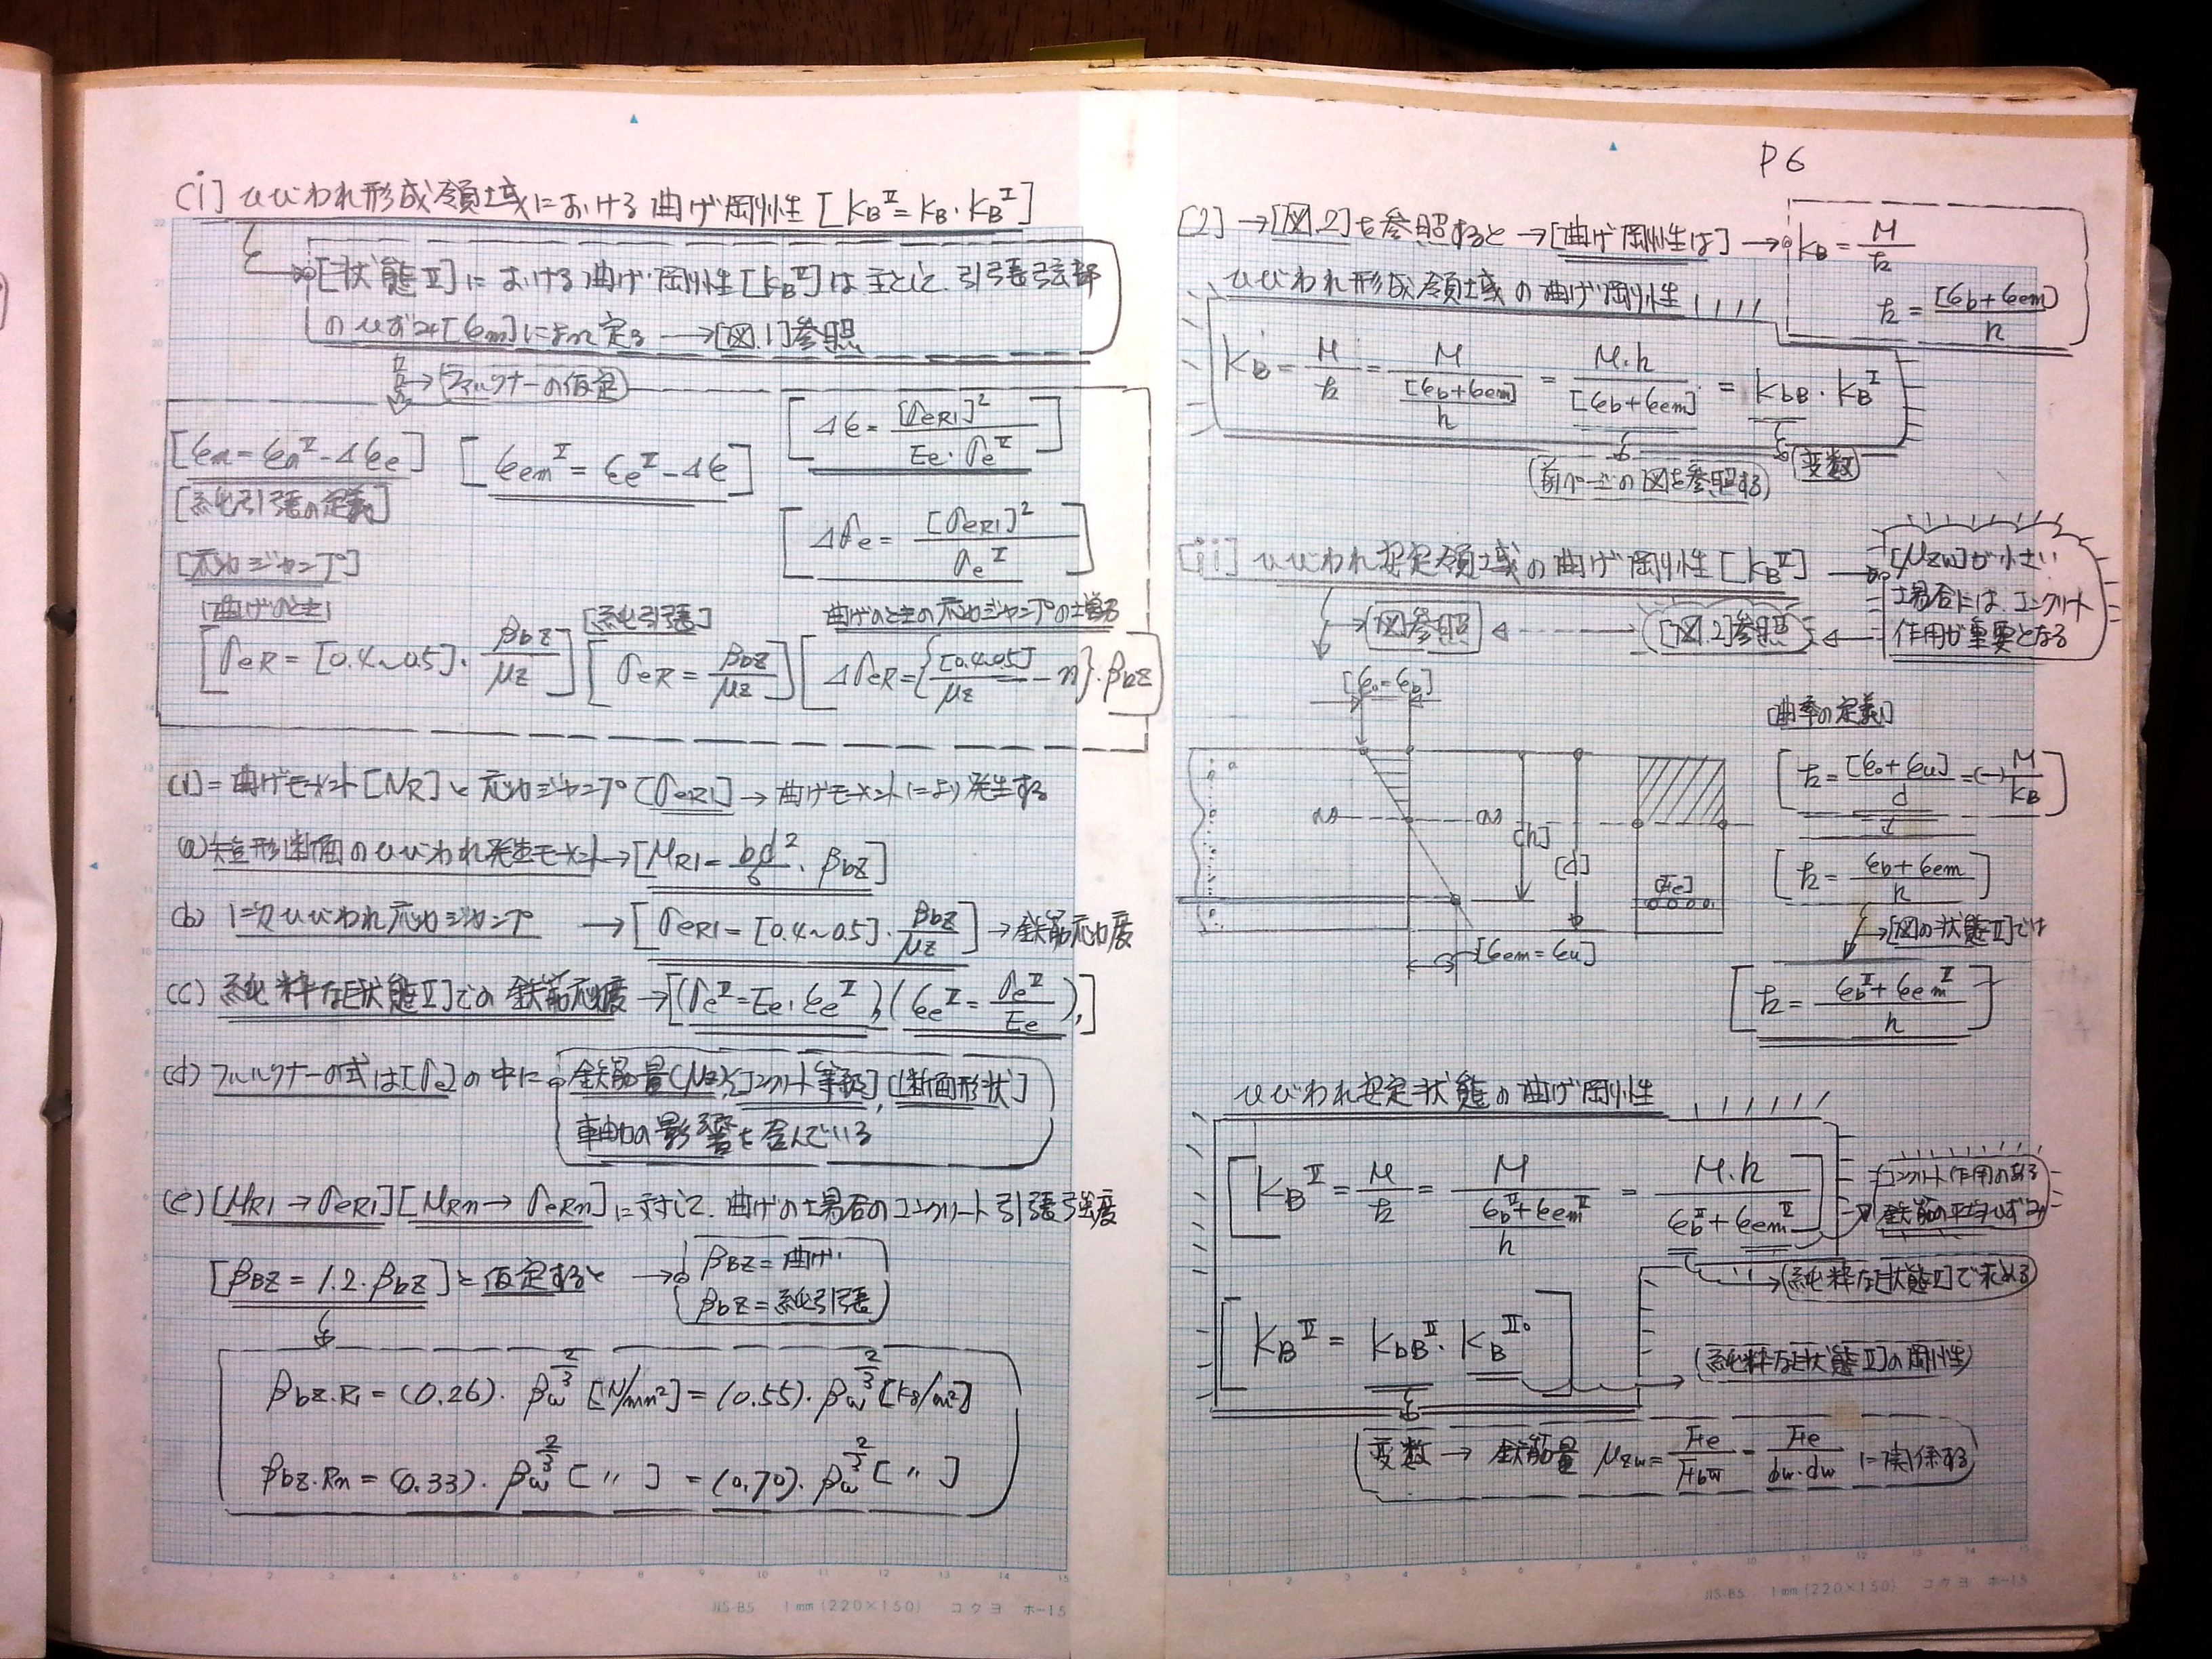 [i] ひびわれ形成領域における曲げ剛性 [K_B^Ⅱ = K_B・K_B^Ⅰ]
[状態Ⅱ]における曲げ剛性[K_B^Ⅱ]は主として、引張弦部
のひずみ[ε_m]によって定る → [図.1]参照
→ (ファルクナーの仮定)
[ε_m = ε_e^Ⅱ - Δε_e] [ε_em^Ⅱ = ε_e^Ⅱ - Δε] [Δε = [σ_eR1]^2 / E_e・σ_e^Ⅱ]
[純引張の定義]
[Δσ_e = [σ_eR1]^2 / σ_e^Ⅱ]
[応力ジャンプ]
[曲げのとき] [純引張] 曲げのときの応力ジャンプの増る
[σ_eR = [0.4~0.5]・β_bz/μ_z] [σ_eR = β_bz/μ_z] [Δσ_eR = {[0.4~0.5]/μ_z - n}・β_bz]
(1) = 曲げモーメント[M_R]と応力ジャンプ[σ_eR1] → 曲げモーメントにより発生する
(a) 矩形断面のひびわれ発生モーメント → [M_R1 = bd^2/6・β_bz]
(b) 1次ひびわれ応力ジャンプ → [σ_eR1 = [0.4~0.5]・β_bz/μ_z] → 鉄筋応力度
(c) 純粋な[状態Ⅱ]での鉄筋応力度 → [(σ_e^Ⅱ = E_e・ε_e^Ⅱ), (ε_e^Ⅱ = σ_e^Ⅱ/E_e),]
(d) フルクナーの式は[σ_e]の中に 鉄筋量(μ_z), [コンクリート等級], [断面形状]
軸力の影響を含んでいる
(e) [M_R1 → σ_eR1] [M_Rn → σ_eRn]に対して、曲げの場合のコンクリート引張強度
[β_BZ = 1.2・β_bz]と仮定すると → β_BZ = 曲げ
β_bz = 純引張
β_bz.R1 = (0.26)・β_w^(2/3) [N/mm²] = (0.55)・β_w^(2/3) [kg/m²]
β_bz.Rn = (0.33)・β_w^(2/3) [ 〃 ] = (0.70)・β_w^(2/3) [ 〃 ]
P6
[2] → [図.2]を参照すると → [曲げ剛性は] → K_B = M/k
k = [ε_b + ε_em]/h
ひびわれ形成領域の曲げ剛性
K_B = M/k = M/([ε_b + ε_em]/h) = M・h/[ε_b + ε_em] = K_bB・K_B^Ⅰ
(前ページの図を参照する) (変数)
[ii] ひびわれ安定領域の曲げ剛性 [K_B^Ⅱ] → [μ_zw]が小さい
場合には、コンクリート
作用が重要となる
→ [図参照] ← → [図.2]参照 ←
[ε_o - ε_b]
[曲率の定義]
[k = [ε_o + ε_u]/d = (-)M/K_B]
[h]
[d]
[Fe]
[k = ε_b + ε_em / h]
→ [図の状態Ⅱ]では
[ε_em = ε_u]
[k = ε_b^Ⅱ + ε_em^Ⅱ / h]
ひびわれ安定状態の曲げ剛性
[K_B^Ⅱ = M/k = M/((ε_b^Ⅱ + ε_em^Ⅱ)/h) = M・h/(ε_b^Ⅱ + ε_em^Ⅱ)]
コンクリート作用のある
鉄筋の平均ひずみ
→ (純粋な[状態Ⅱ]で求める)
[K_B^Ⅱ = K_bB^Ⅱ・K_B^Ⅱo]
(純粋な[状態Ⅱ]の剛性)
(変数 → 鉄筋量 μ_zw = Fe/Fbw = Fe/bw・dw に関係する)
JIS-B5 1mm(220×150) コクヨ ホ-15
JIS-B5 1mm(220×150) コクヨ ホ-15